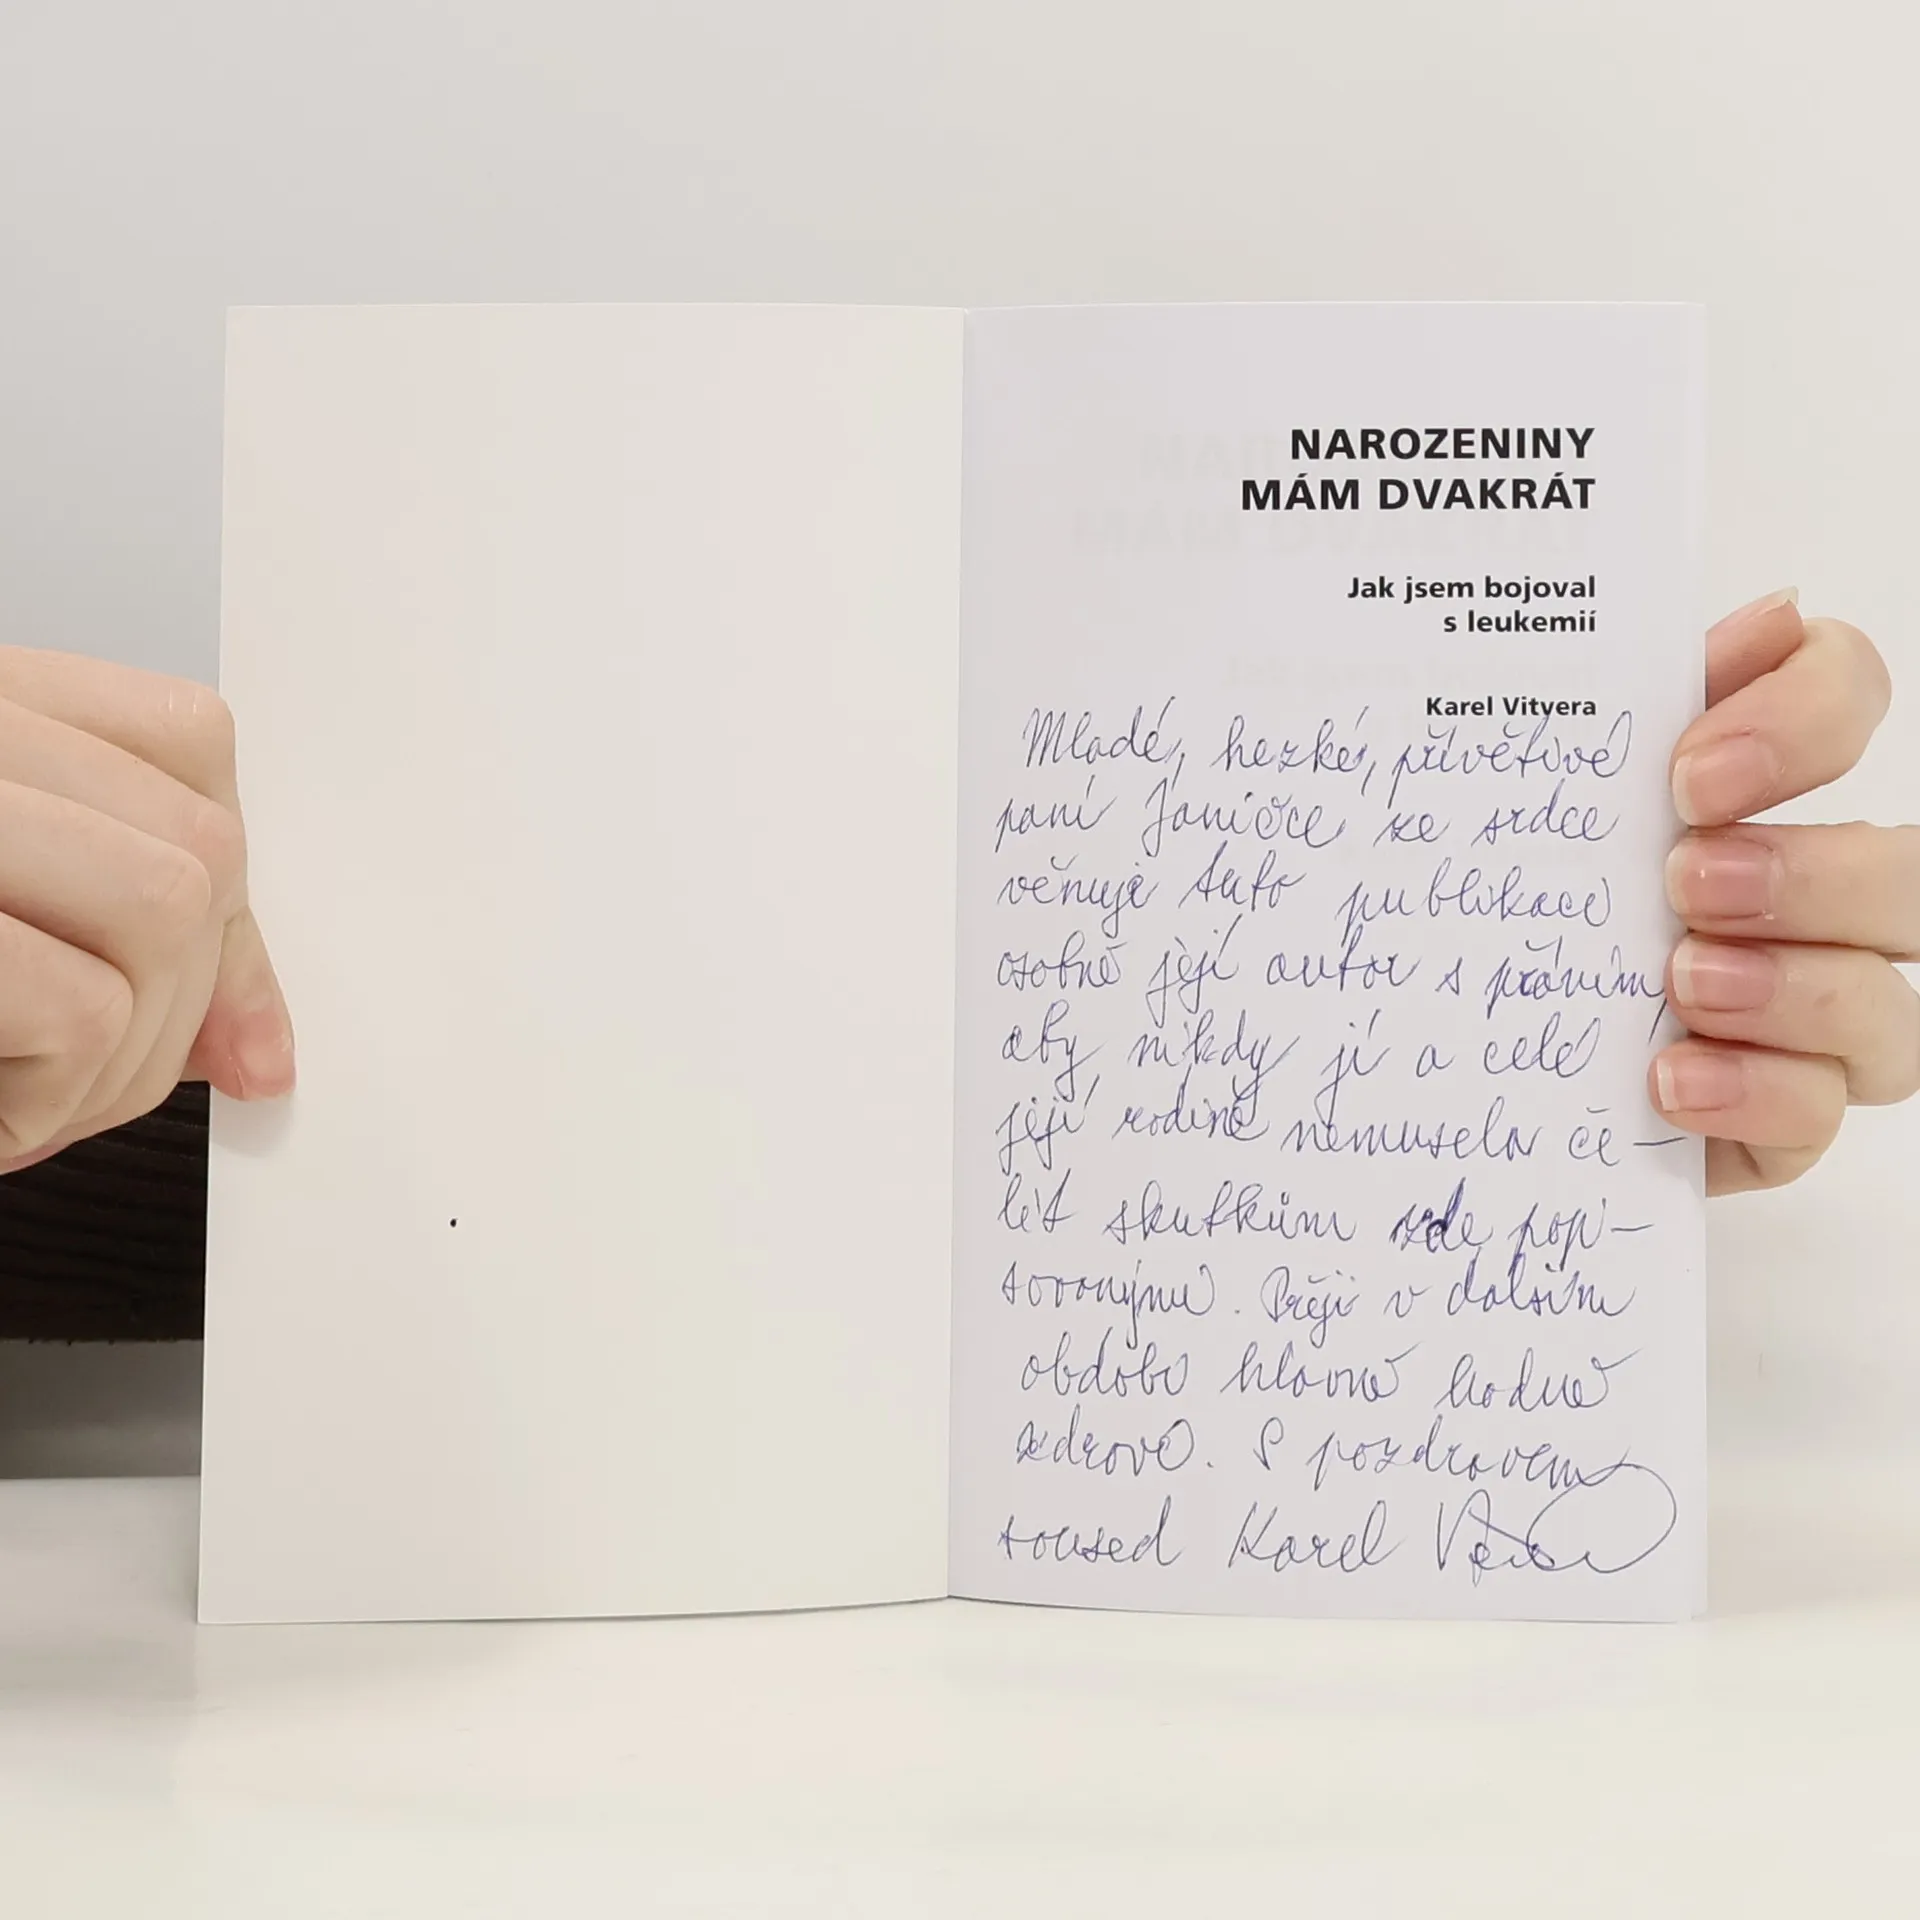 NAROZENINY
MÁM DVAKRÁT
Jak jsem bojoval
s leukemií
Karel Vitvera
Mladé, hezké, přívětivé
paní Janičce ze srdce
věnuje tuto publikaci
osobně její autor s přáním,
aby nikdy jí a celé
její rodině nemusela če–
lit skutkům zde popi–
sovaným. Přeji v dalším
období hlavně hodně
zdraví. S pozdravem
soused Karel